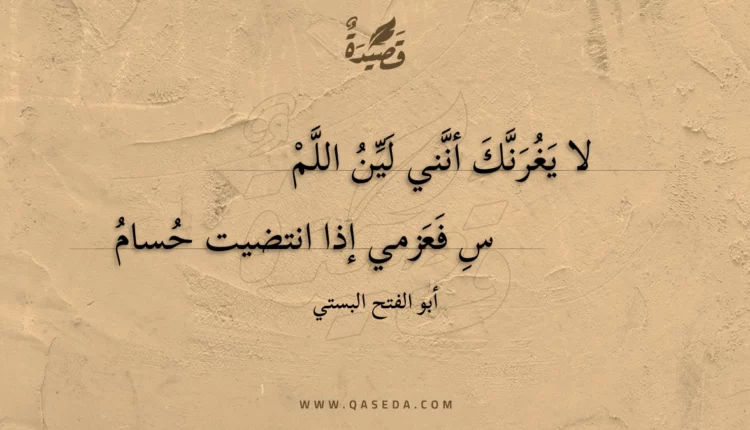 قَصِيْدَةٌ
لا يَغُرَنَّكَ أنَّني لَيِّنُ اللَّمْ
سِ فَعَزمي إذا انتضيت حُسامُ
أبو الفتح البستي
WWW.QASEDA.COM